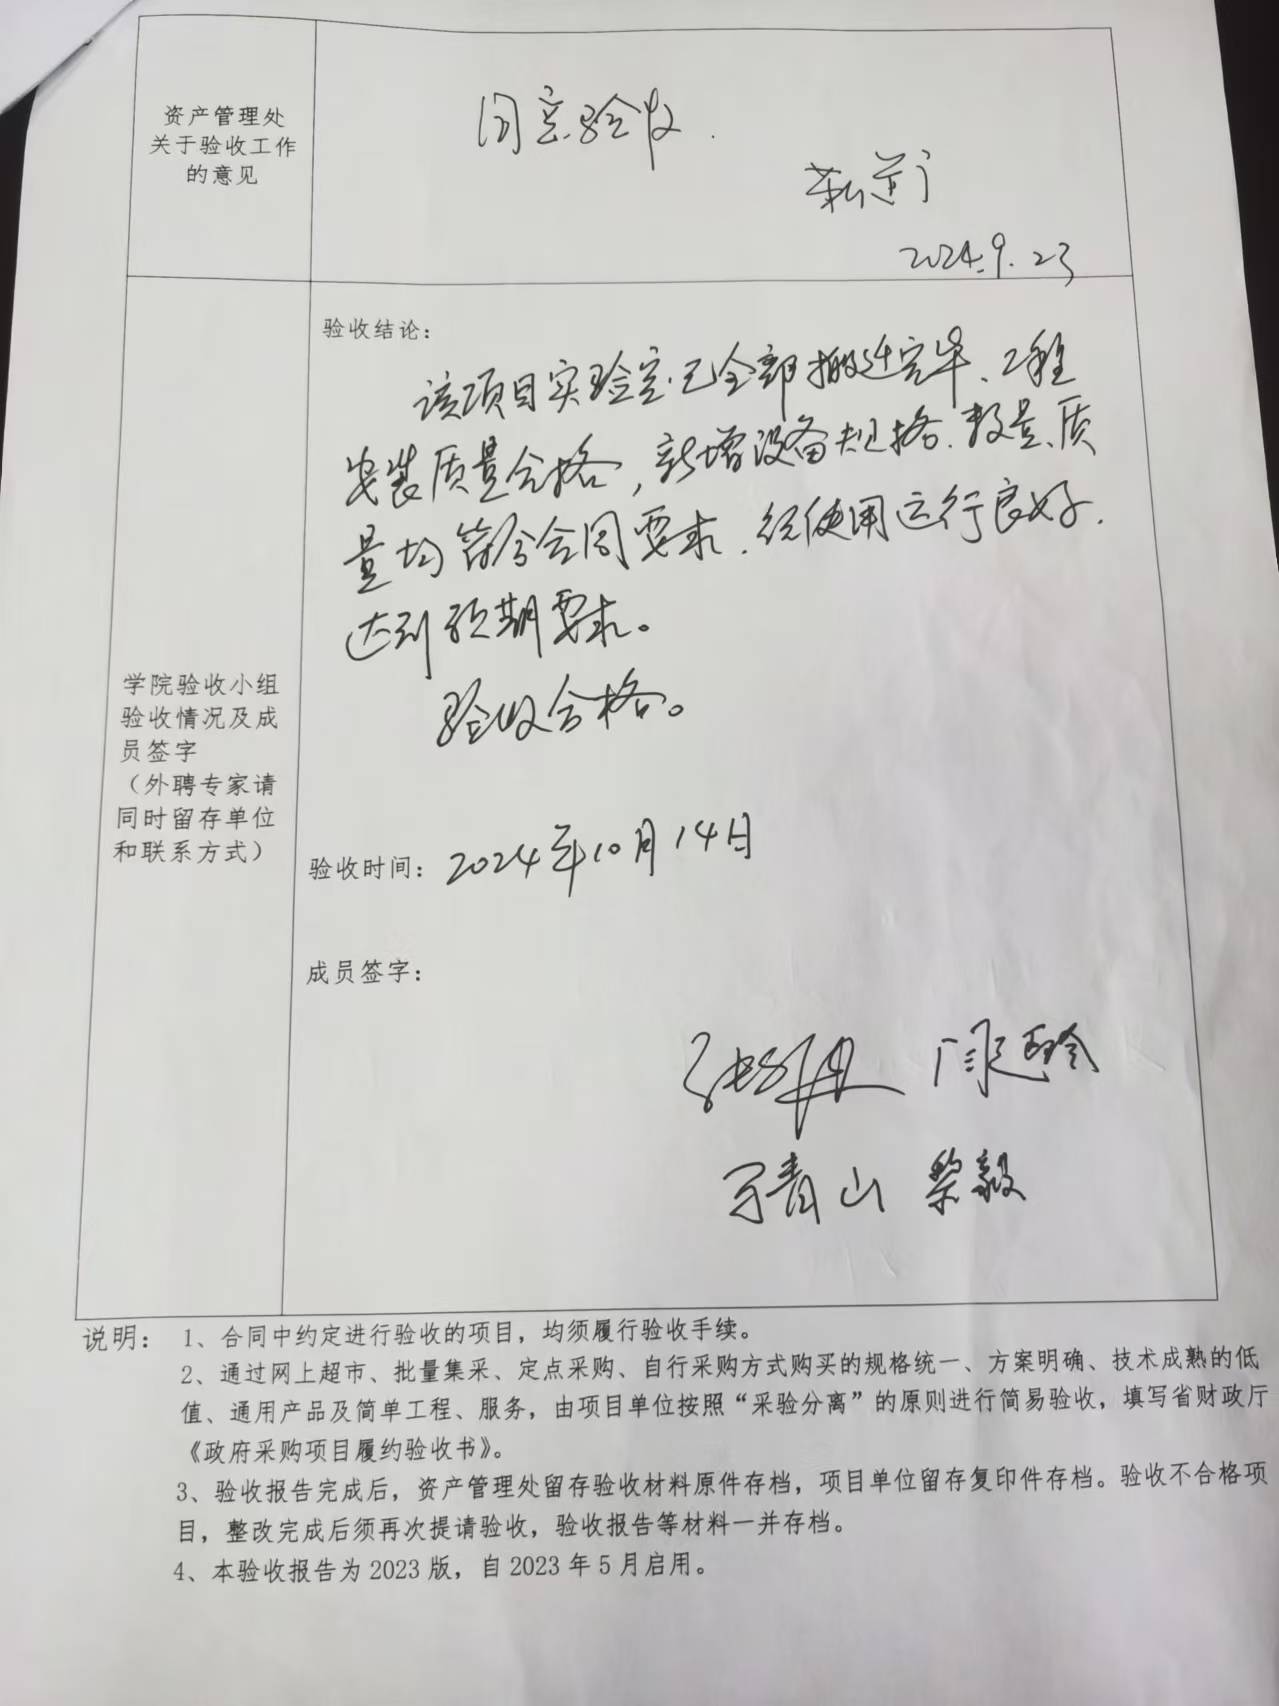 资产管理处
关于验收工作
的意见
同意验收.
2024.9.23
验收结论：
该项目实验室已全部搬迁完毕、工程
安装质量合格，新增设备规格、数量、质
量均符合合同要求，经使用运行良好，
达到预期要求。
验收合格。
学院验收小组
验收情况及成
员签字
（外聘专家请
同时留存单位
和联系方式）
验收时间：2024年10月14日
成员签字：
青山 黎毅
说明：1、合同中约定进行验收的项目，均须履行验收手续。
2、通过网上超市、批量集采、定点采购、自行采购方式购买的规格统一、方案明确、技术成熟的低
值、通用产品及简单工程、服务，由项目单位按照“采验分离”的原则进行简易验收，填写省财政厅
《政府采购项目履约验收书》。
3、验收报告完成后，资产管理处留存验收材料原件存档，项目单位留存复印件存档。验收不合格项
目，整改完成后须再次提请验收，验收报告等材料一并存档。
4、本验收报告为2023版，自2023年5月启用。